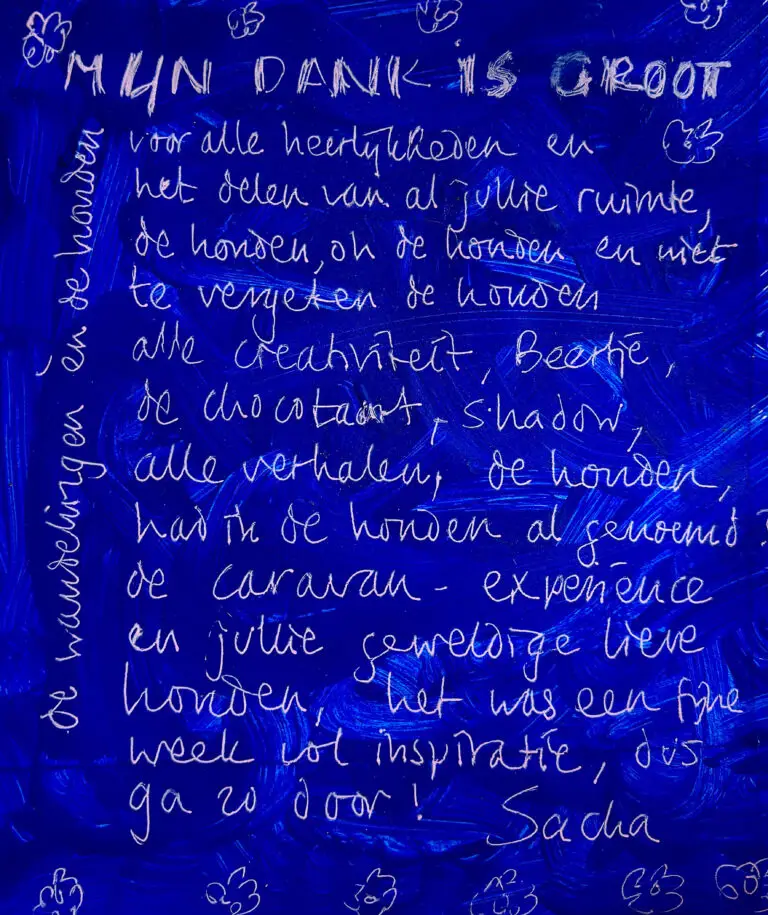 MIJN DANK IS GROOT
voor alle heerlijkheden en
het delen van al jullie ruimte,
de honden, oh de honden en niet
te vergeten de honden
alle creativiteit, Beertje,
de chocotaart, Shadow,
alle verhalen, de honden,
had ik de honden al genoemd?
de caravan - experience
en jullie geweldige lieve
honden, het was een fijne
week vol inspiratie, dus
ga zo door! Sacha
de wandelingen én de honden